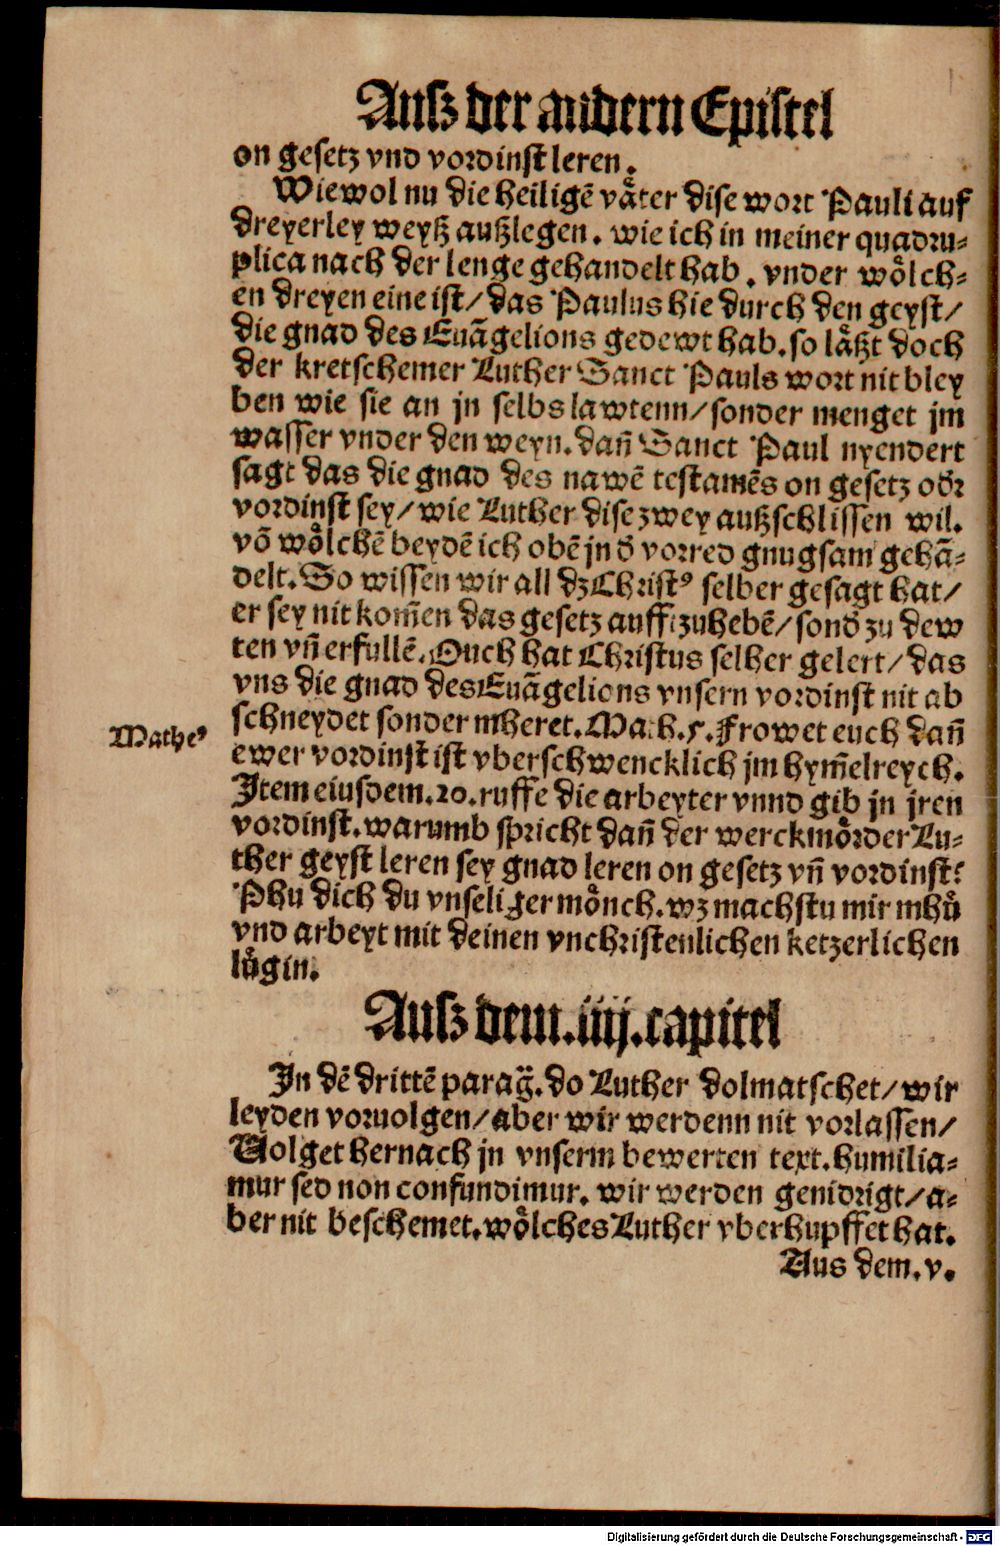 Auſz der andern Epiſtel
on geſetz vnd vordinſt leren.
Wiewol nu die heiligē våter diſe wort Pauli auf
dreyerley weyſz auſzlegen. wie ich in meiner quadru⸗
plica nach der lenge gehandelt hab. vnder wölch⸗
en dreyen eine iſt/ das Paulus hie durch den geyſt/
die gnad des Euāgelions gedewt hab. ſo läſzt doch
der kretſchemer Luther Sanct Pauls wort nit bley
ben wie ſie an jn ſelbs lawtenn/ ſonder menget jm
waſſer vnder den weyn. dañ Sanct Paul nyendert
ſagt das die gnad des nawē teſtamēs on geſetz odr
vordinſt ſey/ wie Luther diſe zwey auſzſchliſſen wil.
vō wölchē beydē ich obē jn d vorred gnugſam gehā⸗
delt. So wiſſen wir all dz Chriſtꝰ ſelber geſagt hat/
er ſey nit kom̄en das geſetz auff zuhebē/ ſond zu dew
ten vñ erfullē. Ouch hat Chriſtus ſelber gelert/ das
vns die gnad des Euāgelions vnſern vordinſt nit ab
ſchneydet ſonder mheret. Math. 5. Frowet euch dañ
Matheꝰ
ewer vordinſt iſt vberſchwencklich jm hym̄elreych.
Item eiusdem. 20. ruffe die arbeyter vnnd gib jn jren
vordinſt. warumb ſpricht dañ der werckmörder Lu⸗
ther geyſt leren ſey gnad leren on geſetz vñ vordinſt?
Phu dich du vnſeliger mönch. wz machſtu mir mhů
vnd arbeyt mit deinen vnchriſtenlichen ketzerlichen
lügin.
Auſz dem. iiij. capitel
In dē drittē parag̃. do Luther dolmatſchet/ wir
leyden voruolgen/ aber wir werdenn nit vorlaſſen/
Volget hernach jn vnſerm bewerten text. humilia⸗
mur ſed non confundimur. wir werden genidrigt/ a⸗
ber nit beſchemet. wölches Luther vberhupffet hat.
Aus dem. v.
Digitalisierung gefördert durch die Deutsche Forschungsgemeinschaft - DFG